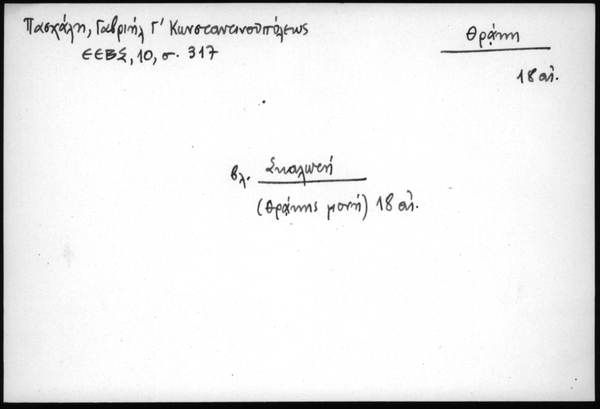 Πασχάλη, Γαβριήλ Γ' Κωνσταντινουπόλεως
ΕΕΒΣ, 10, σ. 317
Θράκη
18 αἰ.
βλ. Σκαλωτή
(Θράκης μονή) 18 αἰ.